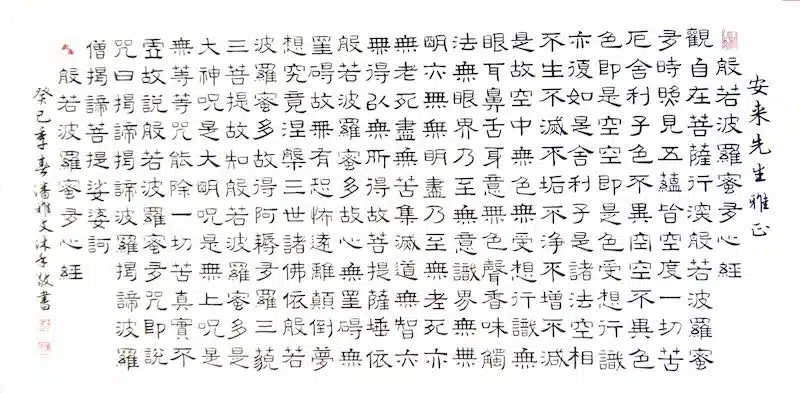 安来先生雅正
般若波羅蜜多心經
觀自在菩薩行深般若波羅蜜
多時照見五蘊皆空度一切苦
厄舍利子色不異空空不異色
色即是空空即是色受想行識
亦復如是舍利子是諸法空相
不生不滅不垢不淨不增不減
是故空中無色無受想行識無
眼耳鼻舌身意無色聲香味觸
法無眼界乃至無意識界無無
明亦無無明盡乃至無老死亦
無老死盡無苦集滅道無智亦
無得以無所得故菩提薩埵依
般若波羅蜜多故心無罣礙無
罣礙故無有恐怖遠離顛倒夢
想究竟涅槃三世諸佛依般若
波羅蜜多故得阿耨多羅三藐
三菩提故知般若波羅蜜多是
大神呪是大明呪是無上呪是
無等等咒能除一切苦真實不
虛故說般若波羅蜜多咒即說
咒曰揭諦揭諦波羅揭諦波羅
僧揭諦菩提娑婆訶
般若波羅蜜多心經
癸巳年春潘雅文沐手敬書